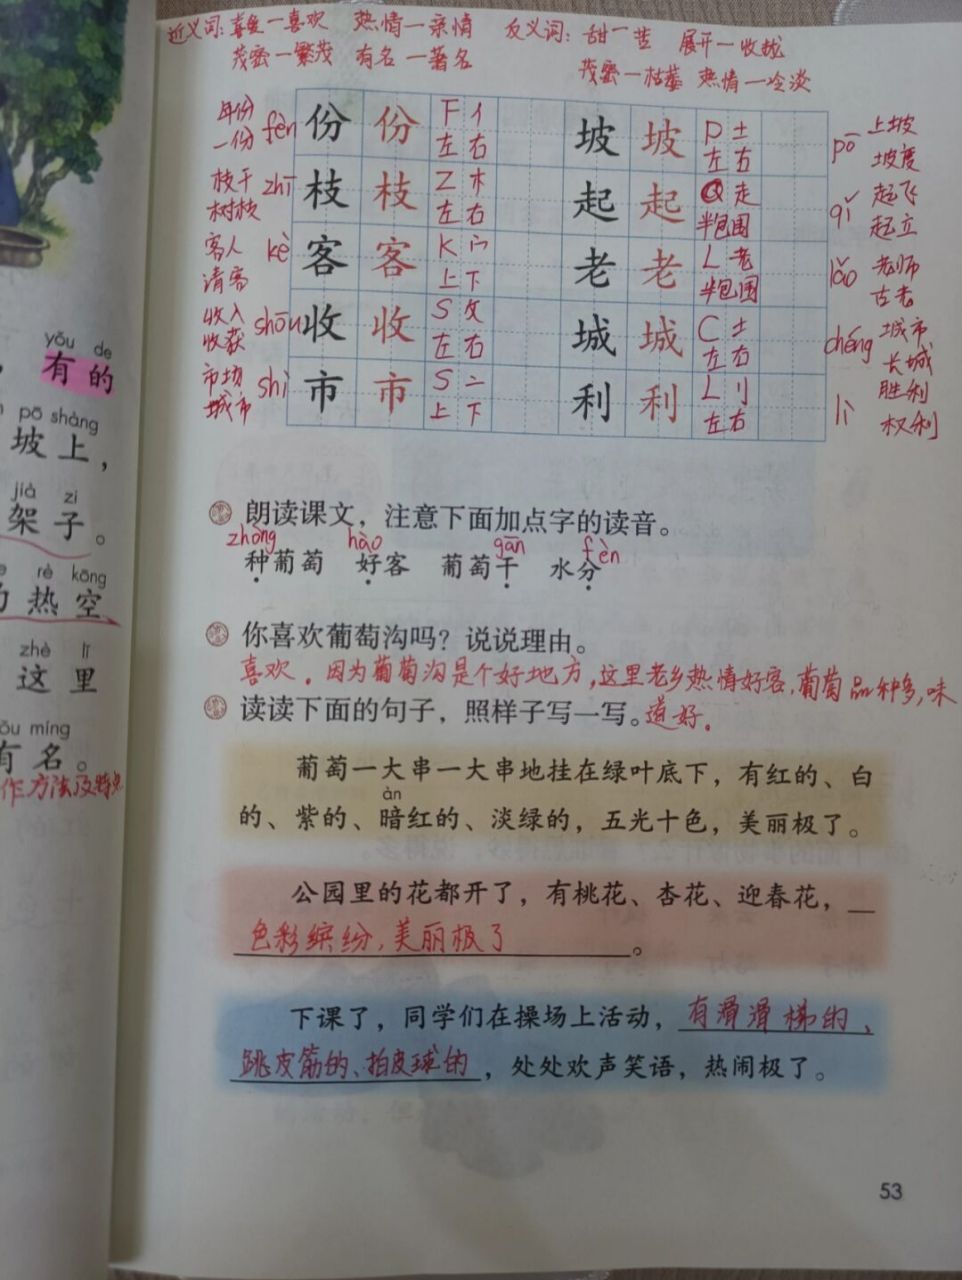 近义词：喜爱一喜欢 热情一亲情 反义词：甜一苦 展开一收拢
茂密一繁茂 有名一著名 茂密一枯萎 热情一冷淡
年份
一份 fèn 份 份 F 亻
左 右
坡 坡 P 土
左 右 pō 上坡
坡度
枝干
树枝 zhī 枝 枝 Z 木
左 右
起 起 Q 走
半包围 qǐ 起飞
起立
客人
请客 kè 客 客 K 宀
上 下
老 老 L 耂
半包围 lǎo 老师
古老
收入
收获 shōu 收 收 S 攵
左 右
城 城 C 土
左 右 chéng 城市
长城
市场
城市 shì 市 市 S 亠
上 下
利 利 L 刂
左右 lì 胜利
权利
yǒu de
有 的
pō shàng
坡 上，
jià zi
架 子。
rè kōng
热 空
zhè lǐ
这 里
míng
有 名。
作方法及特点
朗读课文，注意下面加点字的读音。
zhòng hào gān fèn
种葡萄 好客 葡萄干 水分
你喜欢葡萄沟吗？说说理由。
喜欢。因为葡萄沟是个好地方，这里老乡热情好客，葡萄品种多，味
道好。
读读下面的句子，照样子写一写。
葡萄一大串一大串地挂在绿叶底下，有红的、白
àn
的、紫的、暗红的、淡绿的，五光十色，美丽极了。
公园里的花都开了，有桃花、杏花、迎春花，
色彩缤纷，美丽极了。
下课了，同学们在操场上活动，有滑滑梯的、
跳皮筋的、拍皮球的，处处欢声笑语，热闹极了。
53